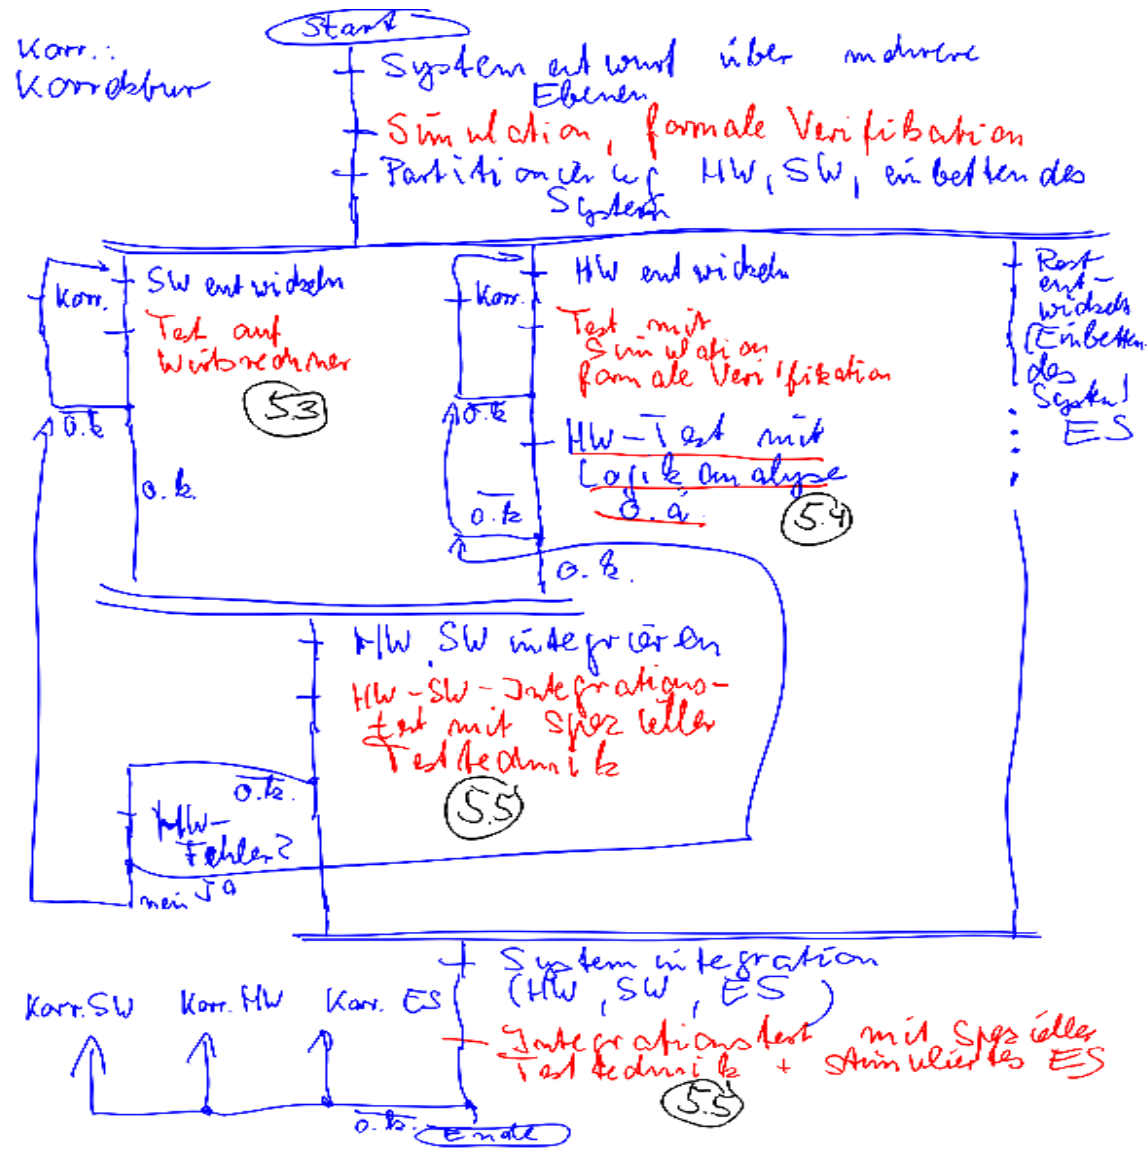 Start
Korr.:
Korrektur
System entwurf über mehrere
Ebenen
Simulation, formale Verifikation
Partitionierung HW, SW, einbettendes
System
SW entwickeln
Korr.
Test auf
Wirtsrechner
5.3
o.k
o.k.
HW entwickeln
Korr.
Test mit
Simulation
formale Verifikation
o.k
HW-Test mit
Logikanalyse
o.ä.
5.4
o.k
o.k.
Rest
ent-
wickeln
(Einbetten
des
System)
ES
HW, SW integrieren
HW-SW-Integrations-
test mit spezieller
Testtechnik
5.5
o.k.
HW-
Fehler?
nein Ja
System integration
(HW, SW, ES)
Korr. SW Korr. HW Korr. ES
Integrationstest mit spezieller
Testtechnik + stimuliertes ES
5.5
o.k.
Ende